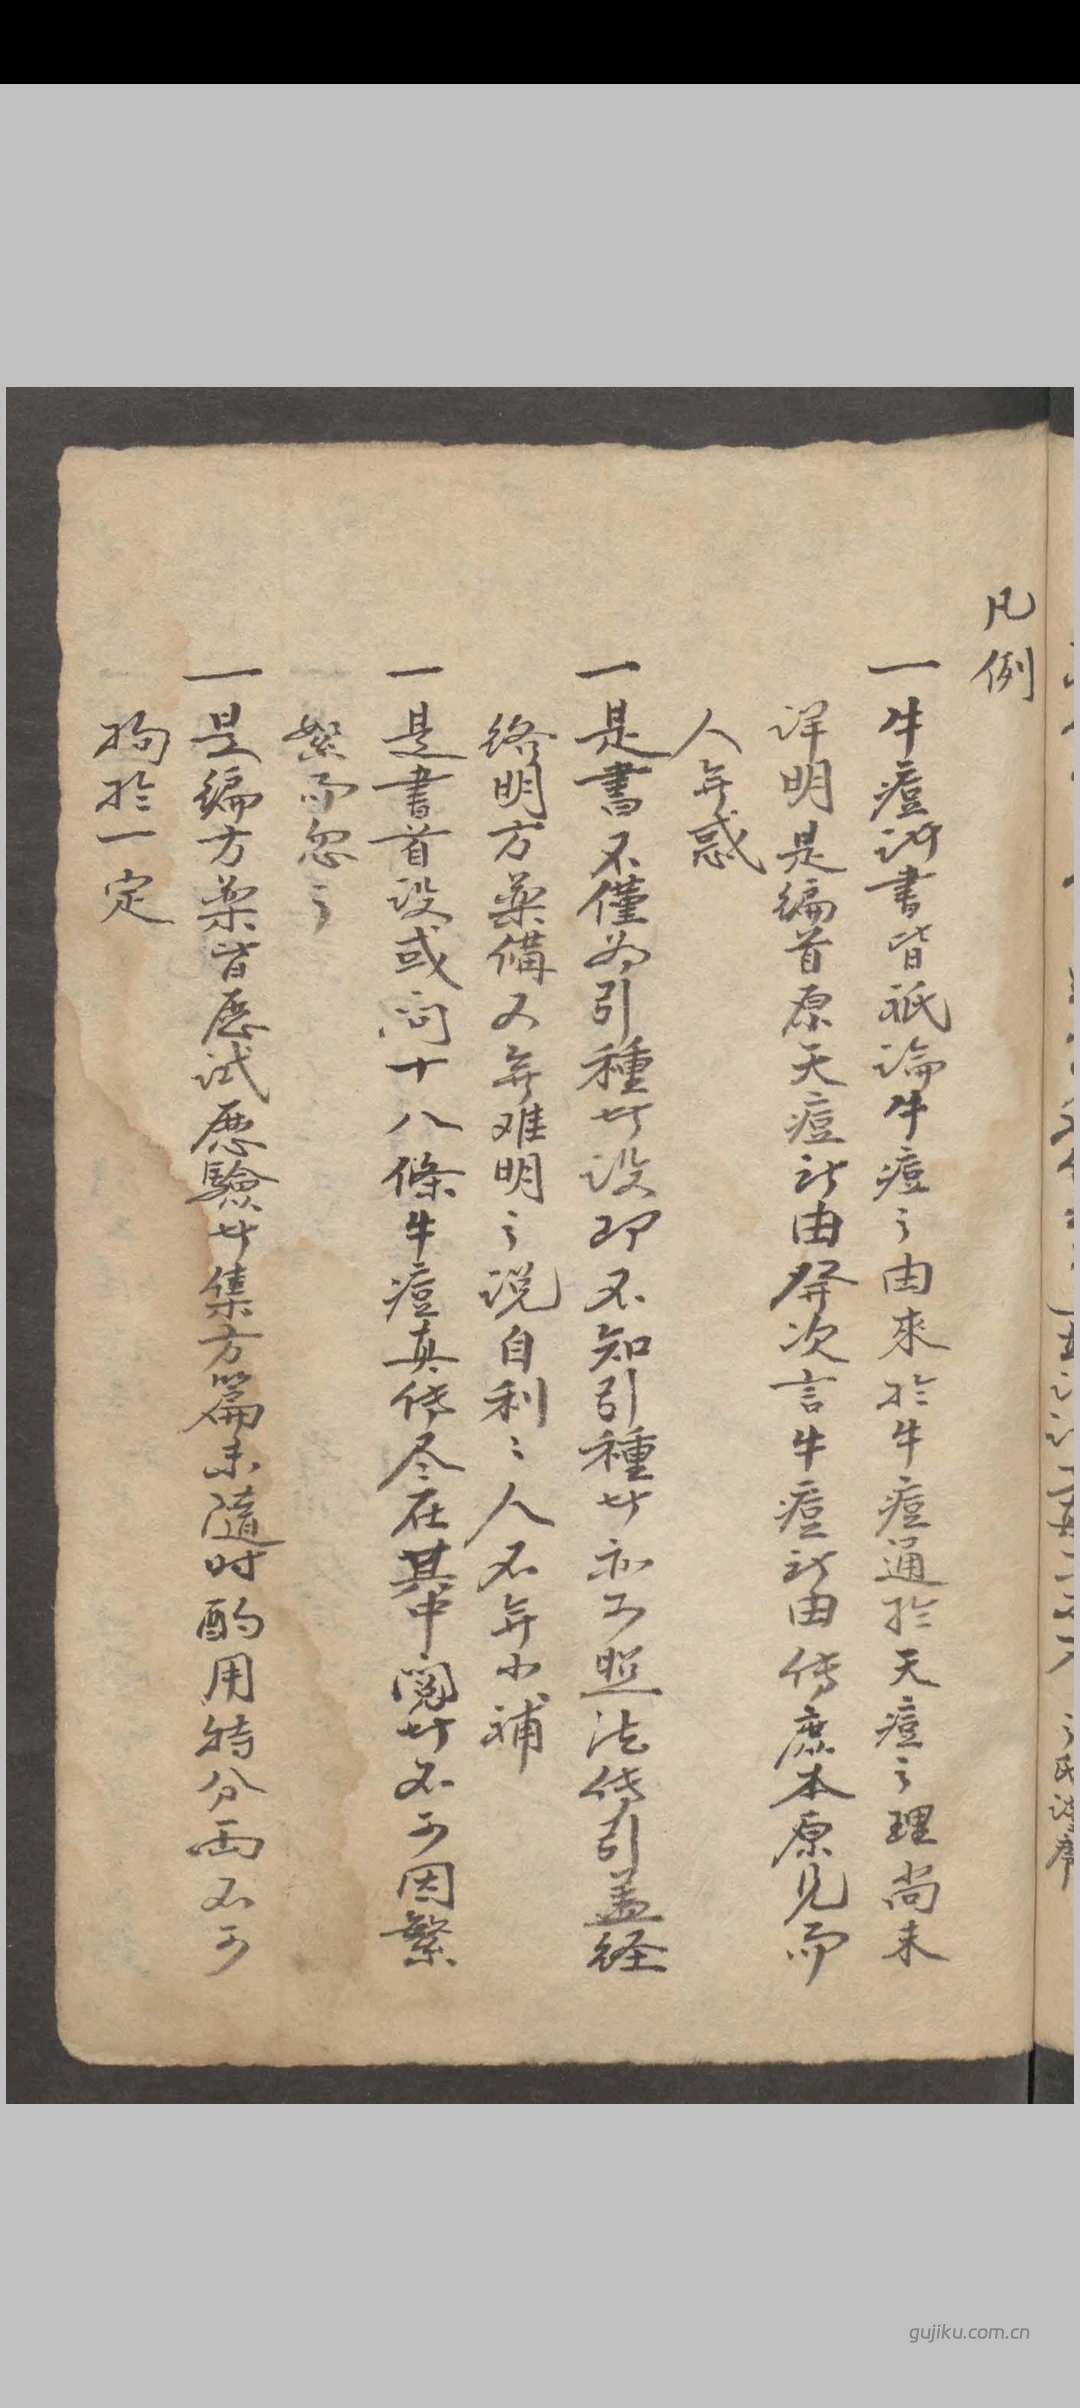 凡例
一牛痘諸書皆祇論牛痘之由來於牛痘通於天痘之理尚未
详明是编首原天痘所由發次言牛痘所由传庶本原見而
人無惑
一是書不僅為引種者设即不知引種者亦可照法传引盖経
络明方薬備又無难明之説自利利人不無小補
一是書首设或问十八條牛痘真传尽在其中阅者不可因繁
絮而忽之
一是编方薬皆歷试歷驗者集方篇末隨时酌用特分两不可
拘於一定
gujiku.com.cn